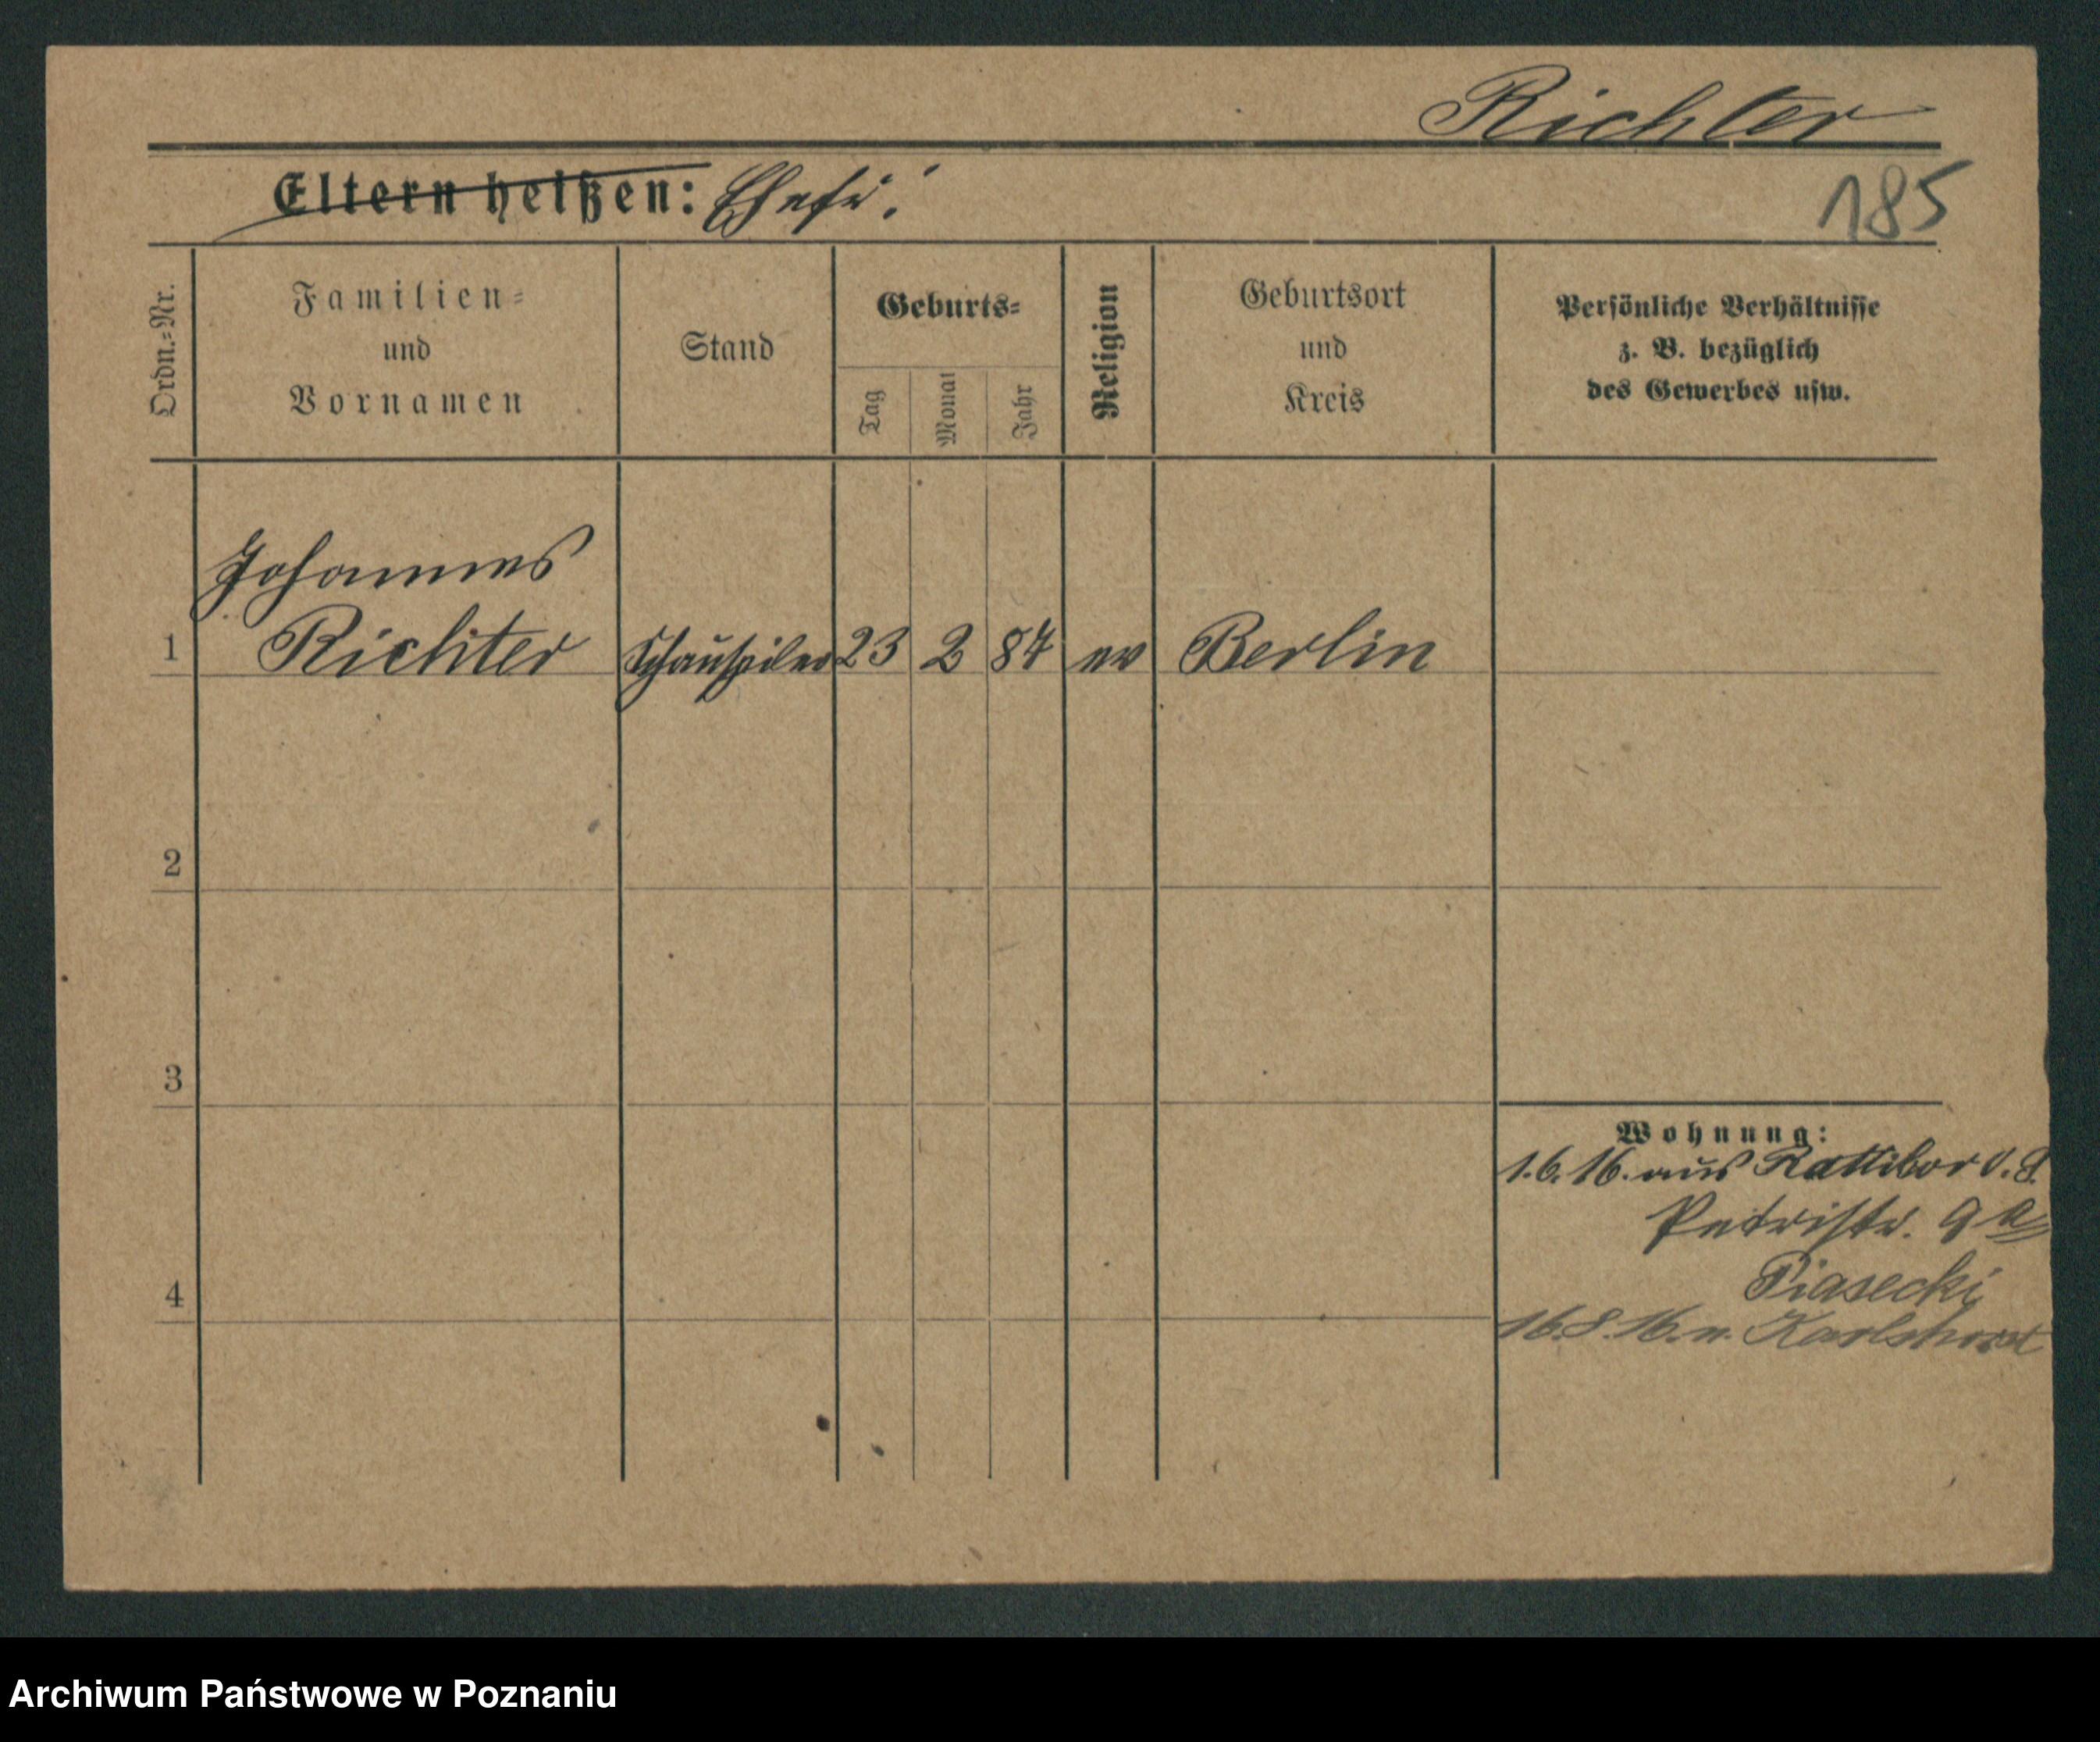 Richter
Eltern heißen: Ehefr:
185
Ordn.=Nr.
Familien=
und
Vornamen
Stand
Geburts=
Tag
Monat
Jahr
Religion
Geburtsort
und
Kreis
Persönliche Verhältnisse
z. B. bezüglich
des Gewerbes usw.
Johannes
1 Richter Schauspieler 23 2 84 ev Berlin
2
3
Wohnung:
1.6.16. aus Rattibor O.S.
Petristr. 9a
Piasecki
4
16.8.16. n. Karlshorst
Archiwum Państwowe w Poznaniu